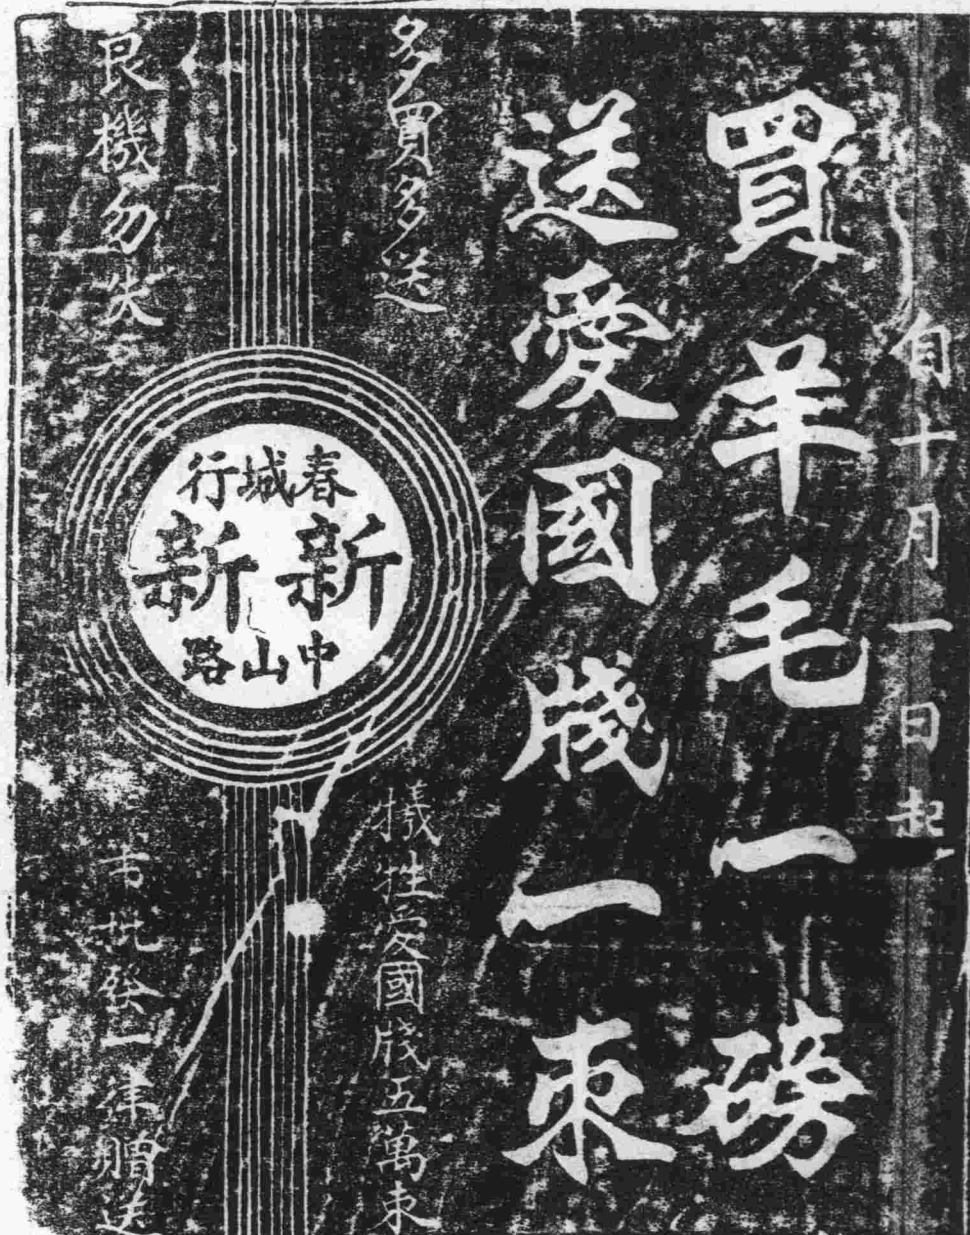 自十月一日起
買羊毛一磅
送愛國牋一束
多買多送
犧牲愛國牋五萬束
春城行
新新
中山路
良機勿失
批發一律贈送